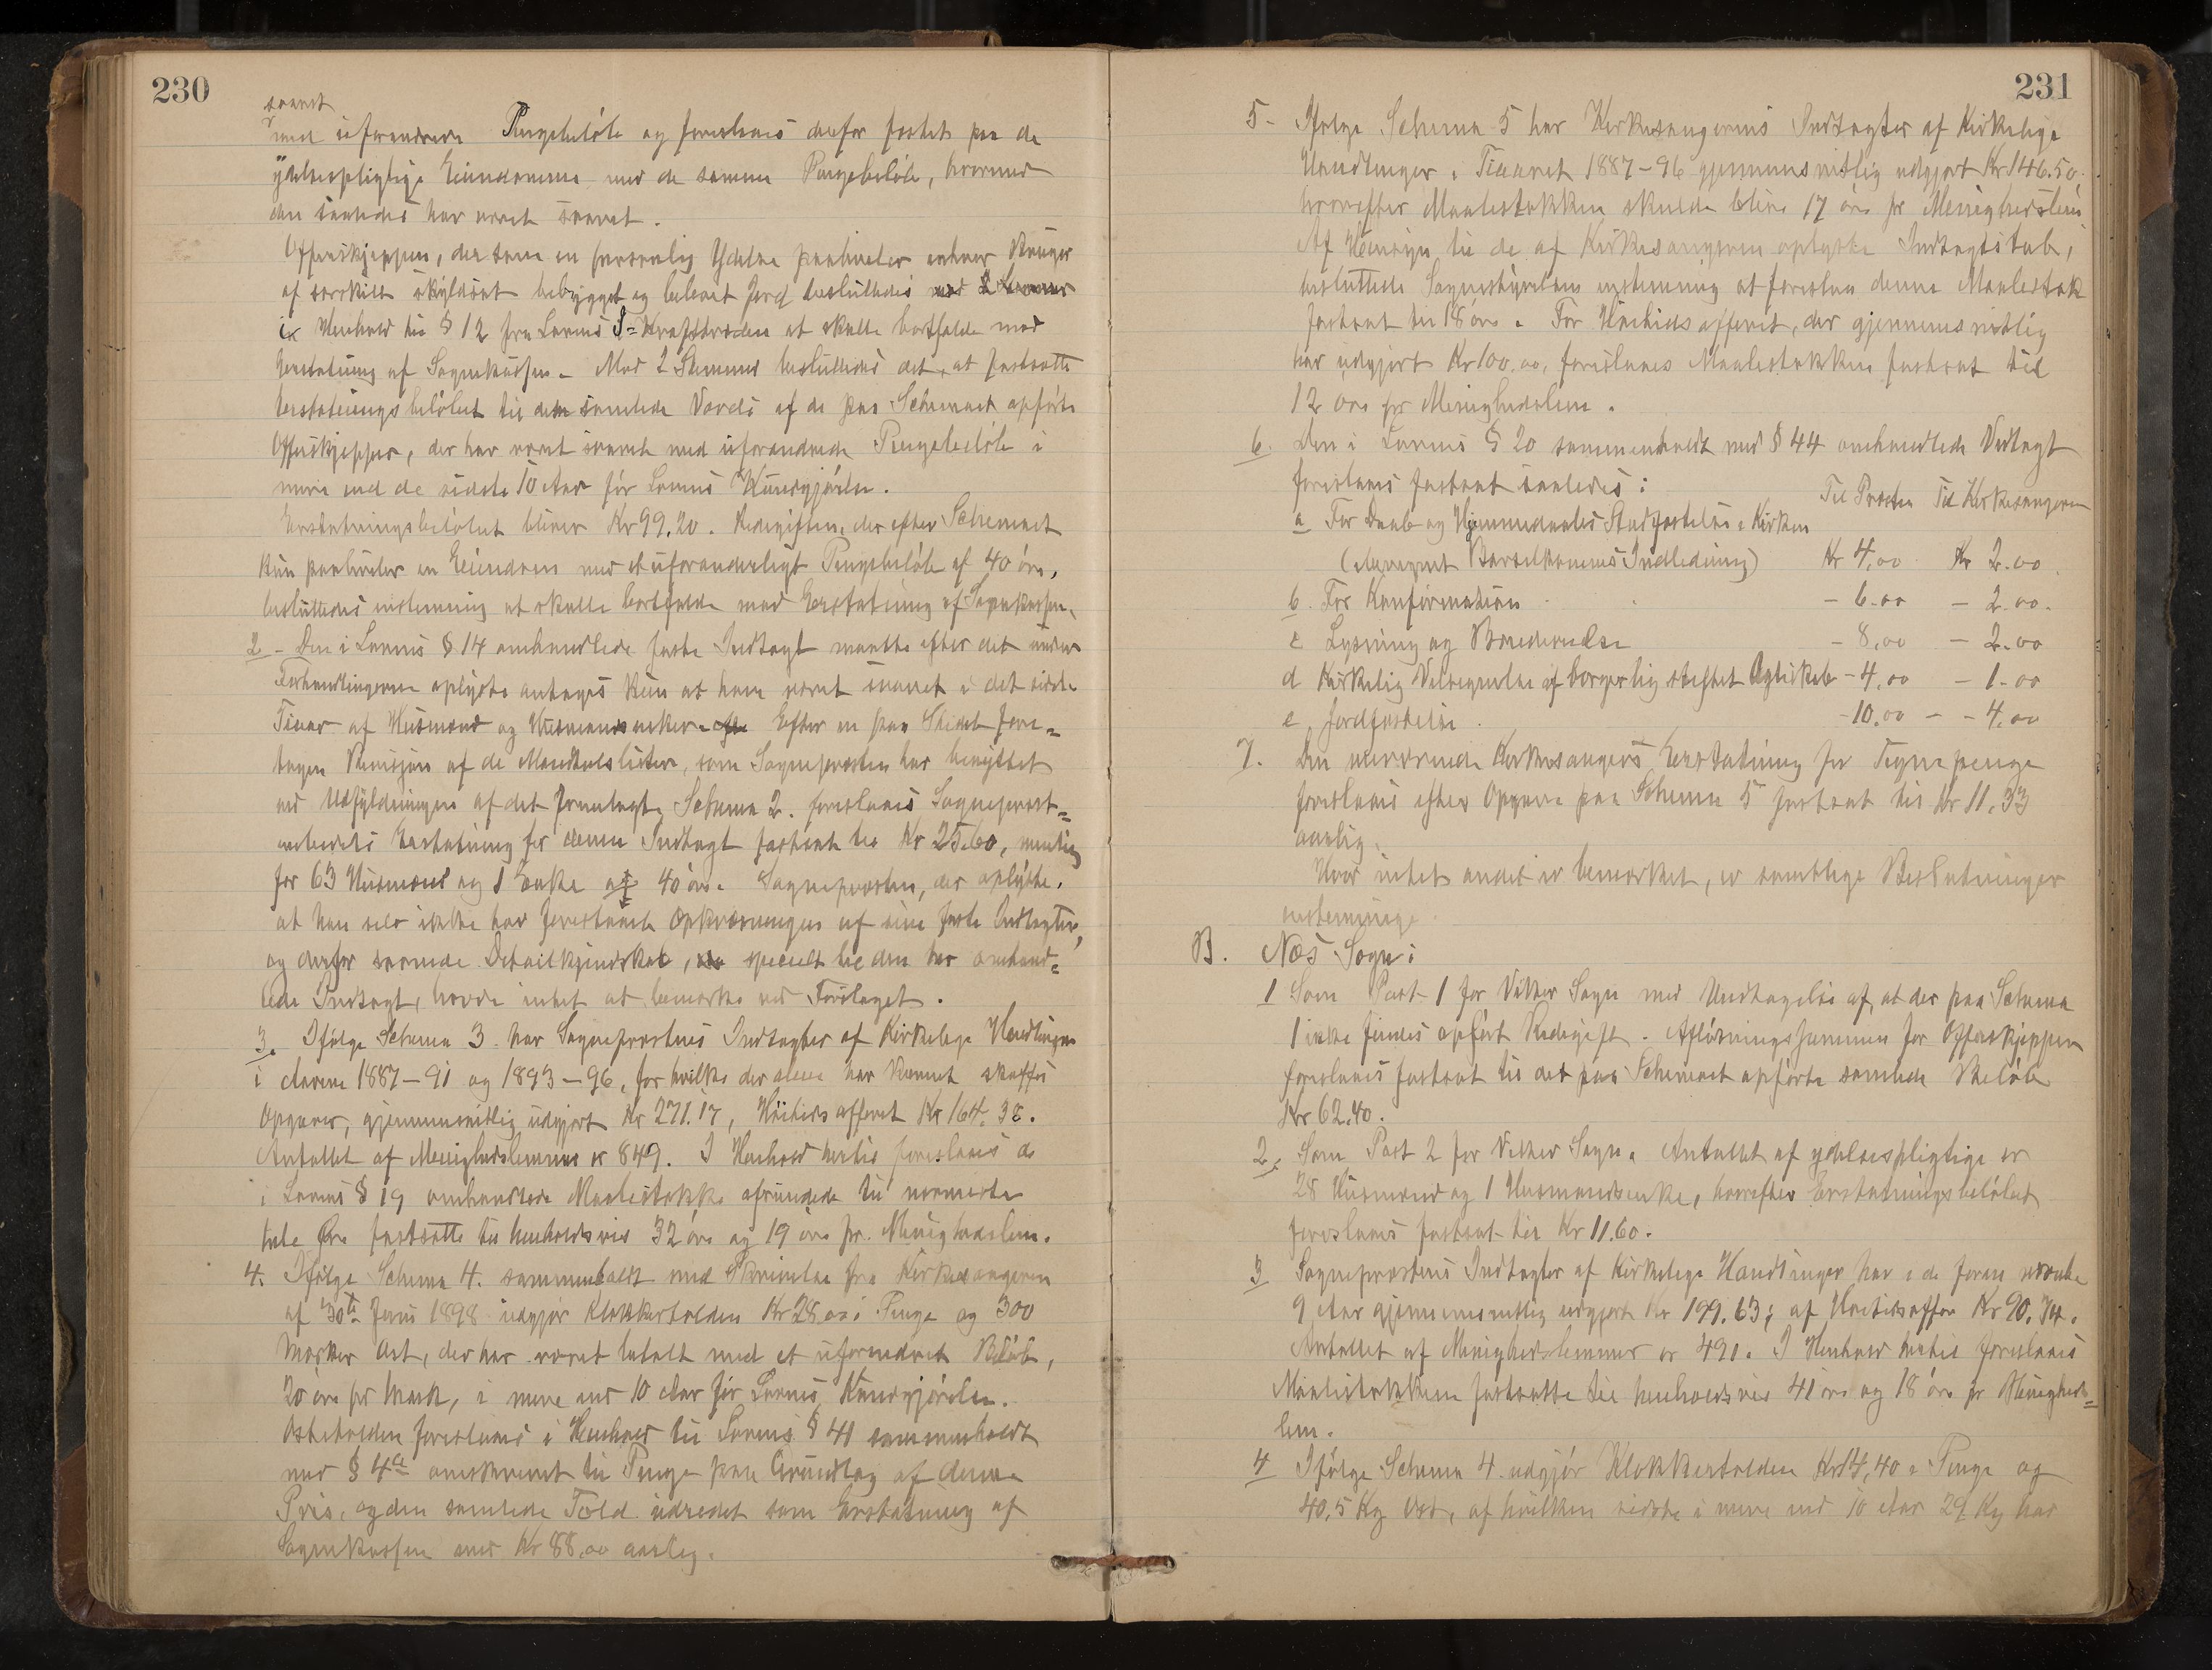 230
svaret
med uforandrede Pengebeløb og foreslaaes derfor fastsat paa de
ydelsespligtige Eiendomme med de samme Pengebeløb, hvormed
den saaledes har været svaret.
Offerskjeppen, der som en personlig Ydelse paahviler enhver Bruger
af særskilt skyldsat bebygget og beboet Jord besluttedes
i Henhold til § 12 fra Lovens I-Krafttræden at skulle bortfalde mod
Erstatning af Sognekassen. Mod 2 Stemmer besluttedes det, at fastsætte
Erstatningsbeløbet til den samlede Værdi af de paa Schemaet opførte
Offerskjepper, der har været svaret med uforandrede Pengebeløb i
mere end de sidste 10 Aar før Lovens Kundgjørelse.
Erstatningsbeløbet bliver Kr 99.20. Redegiften, der efter Schemaet
kun paahviler en Eiendom med et uforanderligt Pengebeløb af 40 øre,
besluttedes enstemmig at skulle bortfalde mod Erstatning af Sognekassen.
2 - Den i Lovens § 14 omhandlede faste Indtægt maatte efter det under
Forhandlingerne oplyste antages kun at have været svaret i det sidste
Tiaar af Husmænd og Husmandsenker. Efter en paa Stedet fore=
tagen Revisjon af de Mandtalslister, som Sognepræsten har benyttet
ved Udfyldningen af det fremlagte Schema 2. foreslaaes Sognepræst=
embedets Erstatning for denne Indtægt fastsat til Kr 25.60, nemlig
for 63 Husmænd og 1 Enke af 40 øre. Sognepræsten, der oplyste,
at han selv ikke har forestaaet Opkrævningen af sine faste Indtægter,
og derfor savnede Detailkjendskab, specielt til den her omhand=
lede Indtægt, havde intet at bemærke ved Forslaget.
3. Ifølge Schema 3 har Sognepræstens Indtægter af Kirkelige Handlinger
i Aarene 1887-91 og 1893-96, for hvilke der alene har kunnet skaffes
Opgaver, gjennemsnitlig udgjort Kr 271.17, Høitidsofferet Kr 164.38.
Antallet af Menighedslemmer er 849. I Henhold hertil foreslaaes de
i Lovens § 19 omhandlede Maalestokke afrundede til nærmeste
hele Øre fastsatte til henholdsvis 32 øre og 19 øre pr. Menighedslem.
4. Ifølge Schema 4. sammenholdt med Skrivelse fra Kirkesangeren
af 30te Juni 1898 udgjør Klokkertolden Kr 28.00 i Penge og 300
Marker Ost, der har været betalt med et uforandret Beløb,
20 øre pr Mark, i mere end 10 Aar før Lovens Kundgjørelse.
Ostetolden foreslaaes i Henhold til Lovens § 41 sammenholdt
med § 4a omskrevet til Penge paa Grundlag af denne
Pris, og den samlede Told udredet som Erstatning af
Sognekassen med Kr 88.00 aarlig.
231
5- Ifølge Schema 5 har Kirkesangerens Indtægter af Kirkelige
Handlinger i Tiaaret 1887-96 gjennemsnitlig udgjort Kr 146.50
hvorefter Maalestokken skulde blive 17 øre pr Menighedslem
Af Hensyn til de af Kirkesangeren oplyste Indtægtstab,
besluttede Sognestyrelsen enstemmig at foreslaa denne Maalestok
fastsat til 18 øre. For Høitidsofferet, der gjennemsnitlig
har udgjort Kr 100.00, foreslaaes Maalestokken fastsat til
12 øre pr Menighedslem.
6. Den i Lovens § 20 sammenholdt med § 44 omhandlede Indtægt
foreslaaes fastsat saaledes:
Til Præsten Til Kirkesangeren
a For Daab og Hjemmedaabs Stadfæstelse i Kirken
(iberegnet Barselkonens Indledning) Kr 4,00 Kr 2.00
b. For Konfirmation - 6.00 - 2.00.
c Lysning og Brudevielse - 8,00 - 2.00
d Kirkelig Velsignelse af borgerlig stiftet Ægteskab - 4,00 - 1.00
e. Jordfæstelse - 10.00 - - 4.00
7. Den nuværende Kirkesangers Erstatning for Tegnepenge
foreslaaes efter Opgave paa Schema 5 fastsat til Kr 11.33
aarlig.
Hvor intet andet er bemærket, er samtlige Beslutninger
enstemmige.
B. Næs Sogn:
1 Som Post 1 for Vikør Sogn med Undtagelse af, at der paa Schema
1 ikke findes opført Redegift. Afløsningssummen for Offerskjeppen
foreslaaes fastsat til det paa Schemaet opførte samlede Beløb
Kr 62.40.
2. Som Post 2 for Vikør Sogn. Antallet af ydelsespligtige er
28 Husmænd og 1 Husmandsenke, hvorefter Erstatningsbeløbet
foreslaaes fastsat til Kr 11.60.
3 Sognepræstens Indtægter af Kirkelige Handlinger har i de foran nævnte
9 Aar gjennemsnitlig udgjort Kr 199.63; af Høitidsoffer Kr 90.74.
Antallet af Menighedslemmer er 491. I Henhold hertil foreslaaes
Maalestokken fastsatte til henholdsvis 41 øre og 18 øre pr Menigheds=
lem.
4 Ifølge Schema 4. udgjør Klokkertolden Kr 14,40 i Penge og
40,5 Kg Ost, af hvilken sidste i mere end 10 Aar 29 Kg har